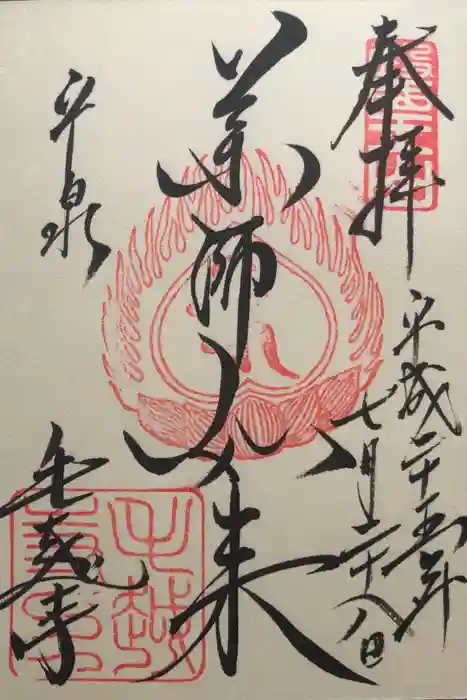 奉拝
平成二十五年
七月二十八日
薬師如来
平泉
毛越寺